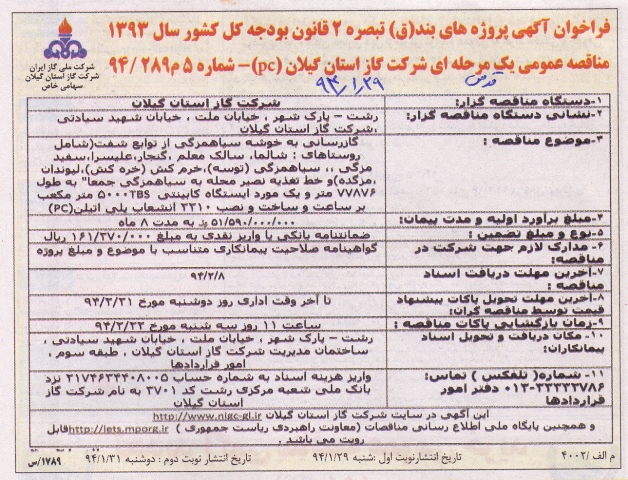 فراخوان آگهی پروژه های بند(ق) تبصره ۲ قانون بودجه کل کشور سال ۱۳۹۳
مناقصه عمومی یک مرحله ای شرکت گاز استان گیلان (pc)– شماره ۵ م۹۴/۲۸۹
شرکت ملی گاز ایران
شرکت گاز استان گیلان
سهامی خاص
قدس ۹۴/۱/۲۹
۱-دستگاه مناقصه گزار: شرکت گاز استان گیلان
۲-نشانی دستگاه مناقصه گزار: رشت – پارک شهر ، خیابان ملت ، خیابان شهید سیادتی
،شرکت گاز استان گیلان
۳-موضوع مناقصه : گازرسانی به خوشه سیاهمزگی از توابع شفت(شامل
روستاهای : شالما، سالک معلم ،گنجار،علیسرا،سفید
مزگی ،، سیاهمزگی (توسه)،خرم کش (خره کش)،لپوندات
،مرگده)و خط تغذیه نصیر محله به سیاهمزگی جمعا" به طول
۷۷۸۷۶ متر و یک مورد ایستگاه کابینتی TBS۵۰۰۰ متر مکعب
بر ساعت و ساخت و نصب ۲۳۱۰ انشعاب پلی اتیلن(PC)
۴-مبلغ برآورد اولیه و مدت پیمان: ۵۱/۵۹۰/۰۰۰/۰۰۰ ریال به مدت ۸ ماه
۵-نوع و مبلغ تضمین : ضمانتنامه بانکی یا واریز نقدی به مبلغ ۱۶۱/۳۷۰/۰۰۰ ریال
۶- مدارک لازم جهت شرکت در مناقصه: گواهینامه صلاحیت پیمانکاری متناسب با موضوع و مبلغ پروژه
۷-آخرین مهلت دریافت اسناد مناقصه : ۹۴/۲/۸
۸-آخرین مهلت تحویل پاکات پیشنهاد قیمت توسط مناقصه گران: تا آخر وقت اداری روز دوشنبه مورخ ۹۴/۲/۲۱
۹-زمان بازگشایی پاکات مناقصه : ساعت ۱۱ روز سه شنبه مورخ ۹۴/۲/۲۲
۱۰- مکان دریافت و تحویل اسناد پیمانکاران: رشت – پارک شهر ، خیابان ملت ، خیابان شهید سیادتی ،
ساختمان مدیریت شرکت گاز استان گیلان ، طبقه سوم ،
امور قراردادها
۱۱- شماره( تلفکس ) تماس: ۳۳۳۳۳۷۸۶-۰۱۳ دفتر امور قراردادها
واریز هزینه اسناد به شماره حساب ۲۱۷۴۶۳۴۴۰۸۰۰۵ نزد
بانک ملی شعبه مرکزی رشت کد ۳۷۰۱ به نام شرکت گاز
استان گیلان
این آگهی در سایت شرکت گاز استان گیلان http://www.nigc-gl.ir
و همچنین پایگاه ملی اطلاع رسانی مناقصات (معاونت راهبردی ریاست جمهوری ) http://iets.mporg.ir قابل
رویت می باشد .
م الف /۴۰۰۲ تاریخ انتشارنوبت اول :شنبه ۹۴/۱/۲۹ تاریخ انتشار نوبت دوم : دوشنبه ۹۴/۱/۳۱ ۱۷۸۹/س